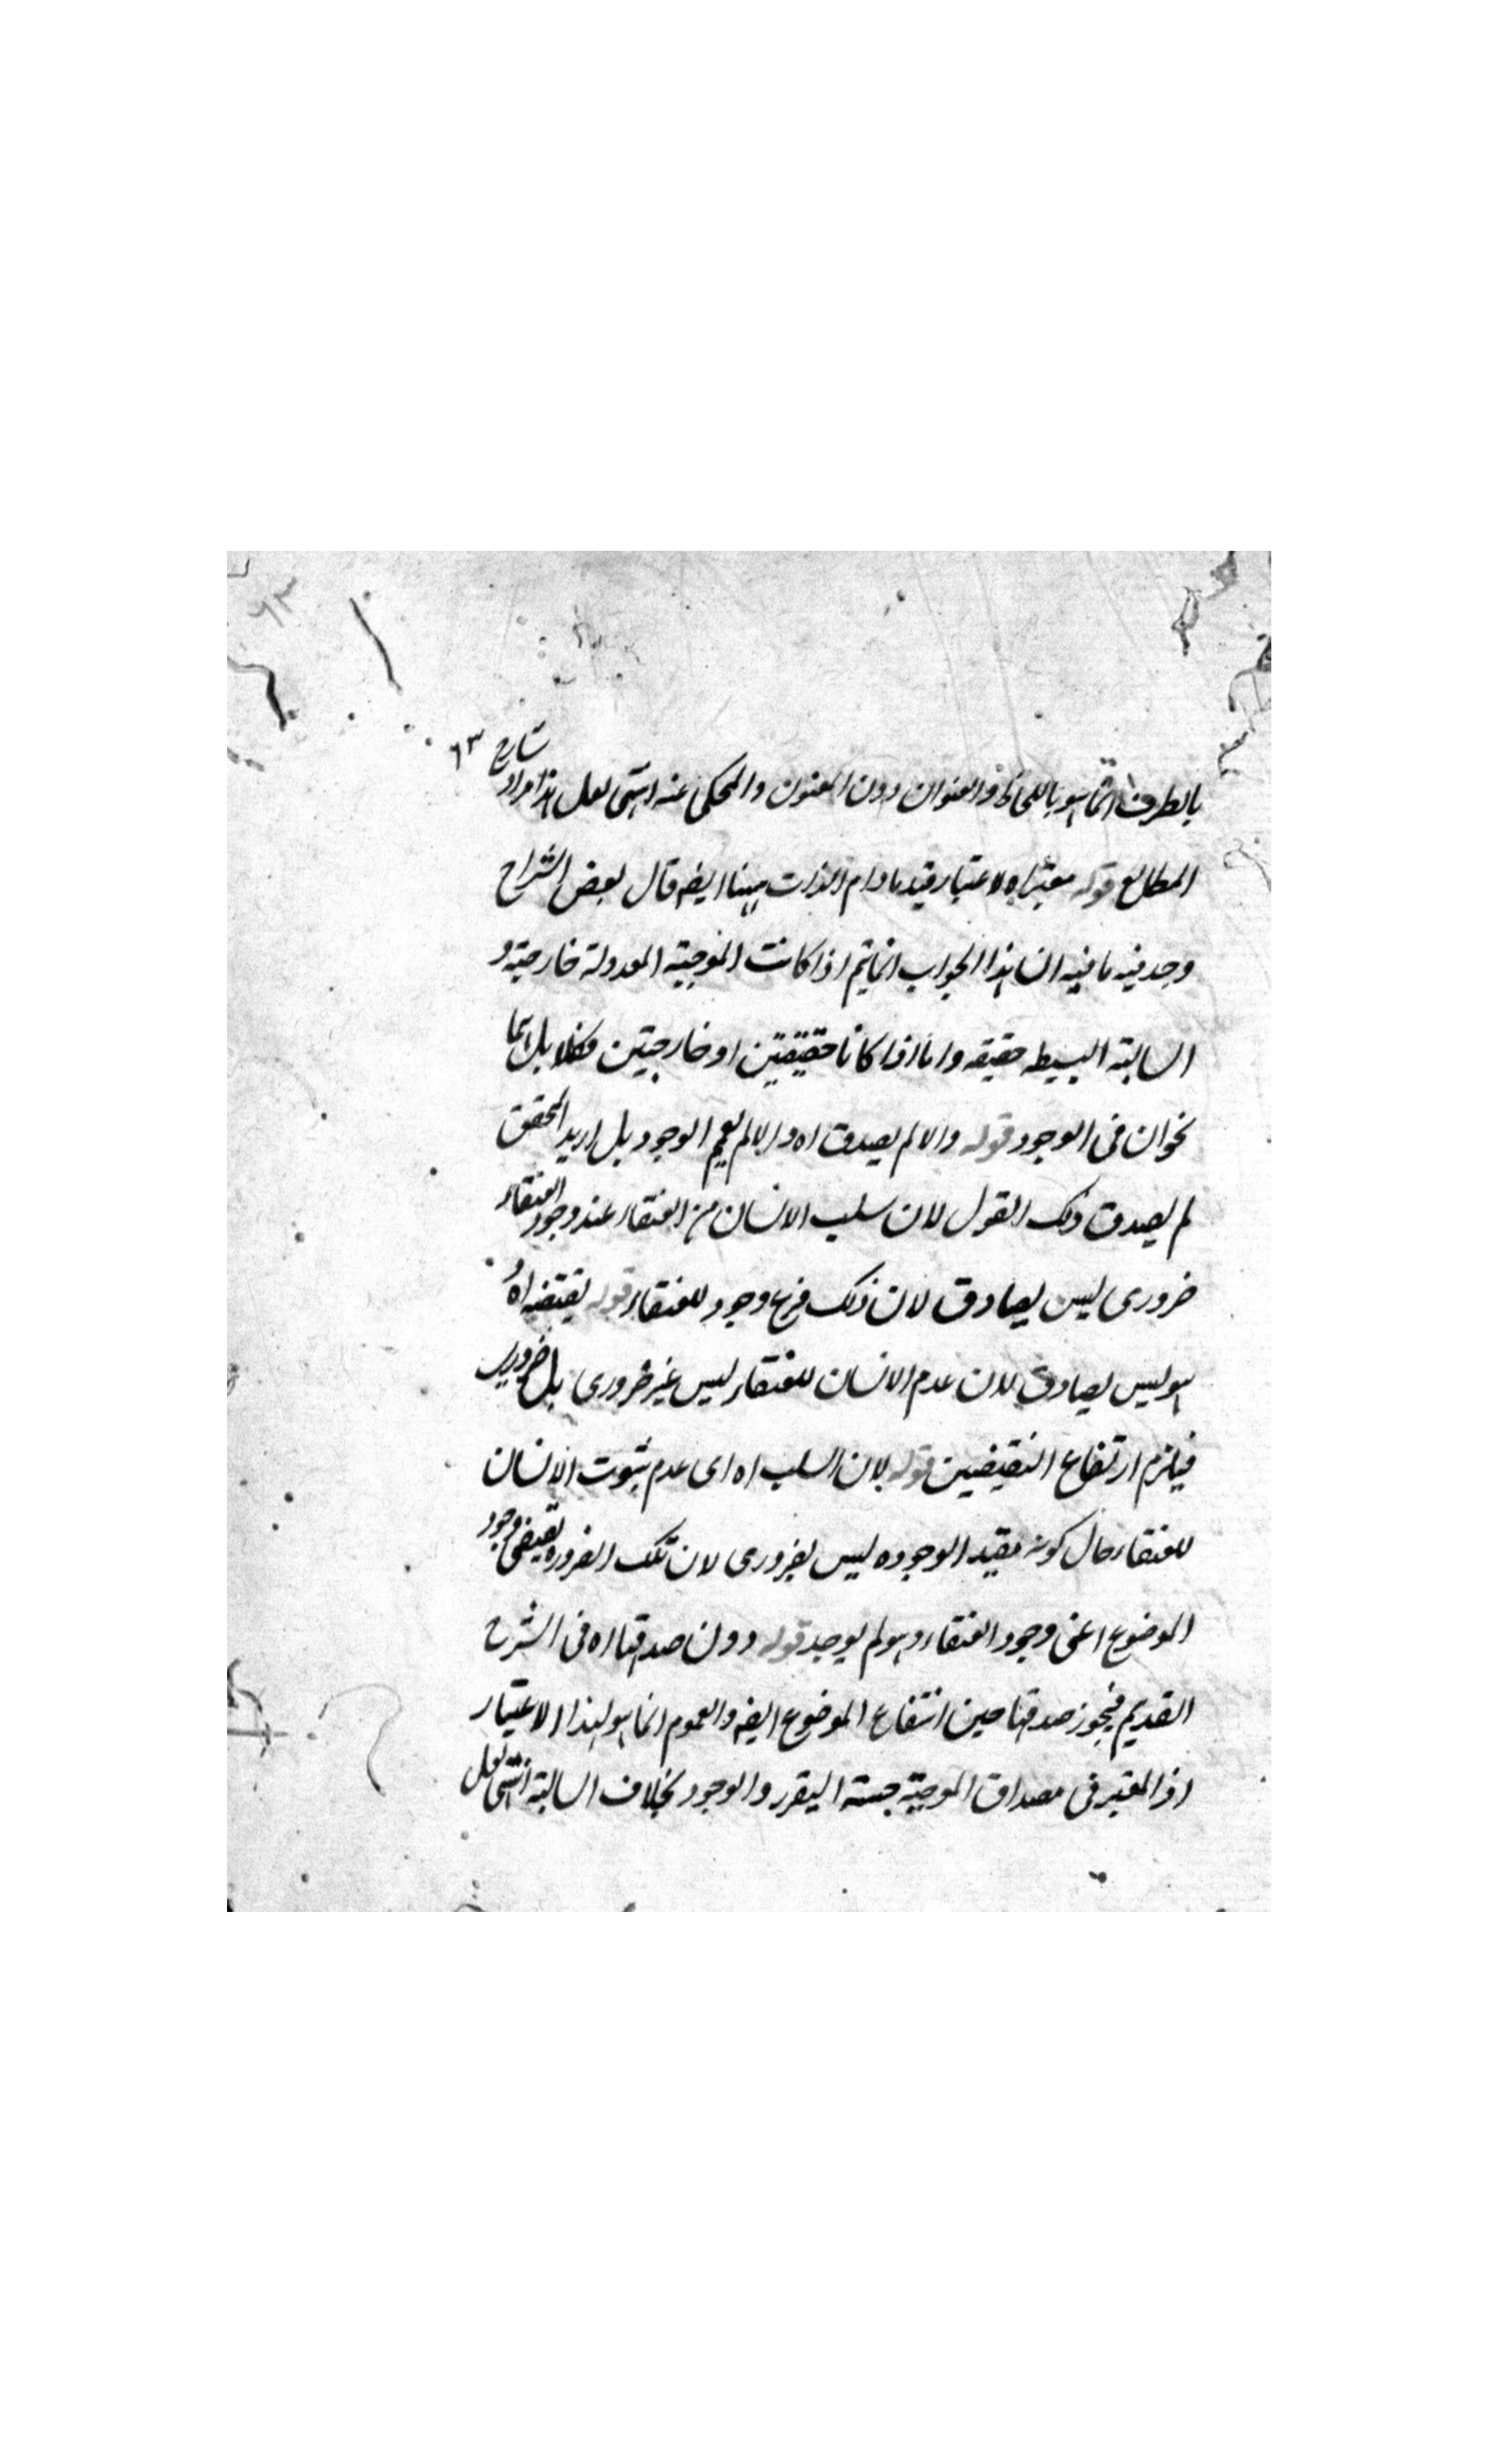 ٦٣
بالطرف انما هو باللحاظ والعنوان دون المعنون والمحكى عنه انتهى لعل هذا مراد شارح
المطالع قوله معتبرا اه لاعتبار قيد ما دام الذات ههنا ايضه قال بعض الشراح
وجد فيه ما فيه ان هذا الجواب انما يتم اذا كانت الموجبة المعدولة خارجية و
السالبة البسيطه حقيقه واما اذا كانا حقيقيتين او خارجيتين فكلا بل هما
نحوان فى الوجود قوله والا لم يصدق اه والا لم يعم الوجود بل اريد المحقق
لم يصدق ذلك القول لان سلب الانسان من العنقاء عند وجود العنقاء
ضرورى ليس بصادق لان ذلك فرع وجود للعنقاء قوله نقيضه اه
هو ليس بصادق لان عدم الانسان للعنقاء ليس غير ضرورى بل ضرورى
فيلزم ارتفاع النقيضين قوله لان السلب اه اى عدم ثبوت الانسان
للعنقاء حال كونه بقيد الوجوده ليس بضرورى لان تلك الضروره تقيضى وجود
الموضوع اعنى وجود العنقاء وهو لم يوجد قوله دون صدقها اه فى الشرح
القديم فيجوز صدقها حين انتفاع الموضوع ايضه والعموم انما هو لهذا الاعتبار
اذ المعتبر فى مصداق الموجبة جهة التقرر والوجود بخلاف السالبة انتهى لعل